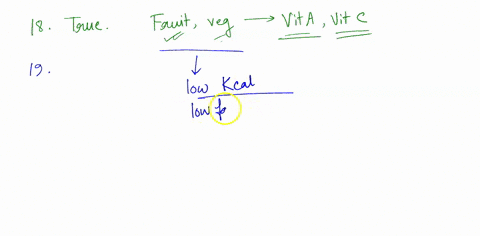 18. True. Fruit, veg → Vit A, Vit C
19.
↓
low Kcal
low f